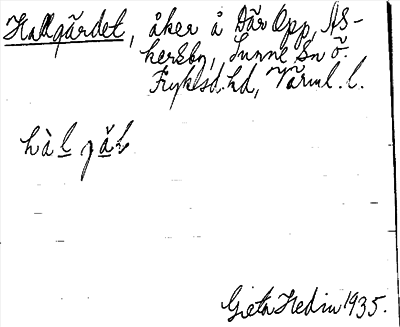 Hallgärdet, åker å Där Opp, Äs-
kersby, Sunne Sn Ö.
Fryksd. hd, Värml. l.
Greta Hedin 1935.